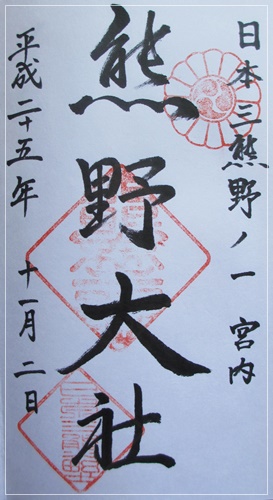 日本三熊野ノ一 宮内
熊野大社
平成二十五年 十一月二日